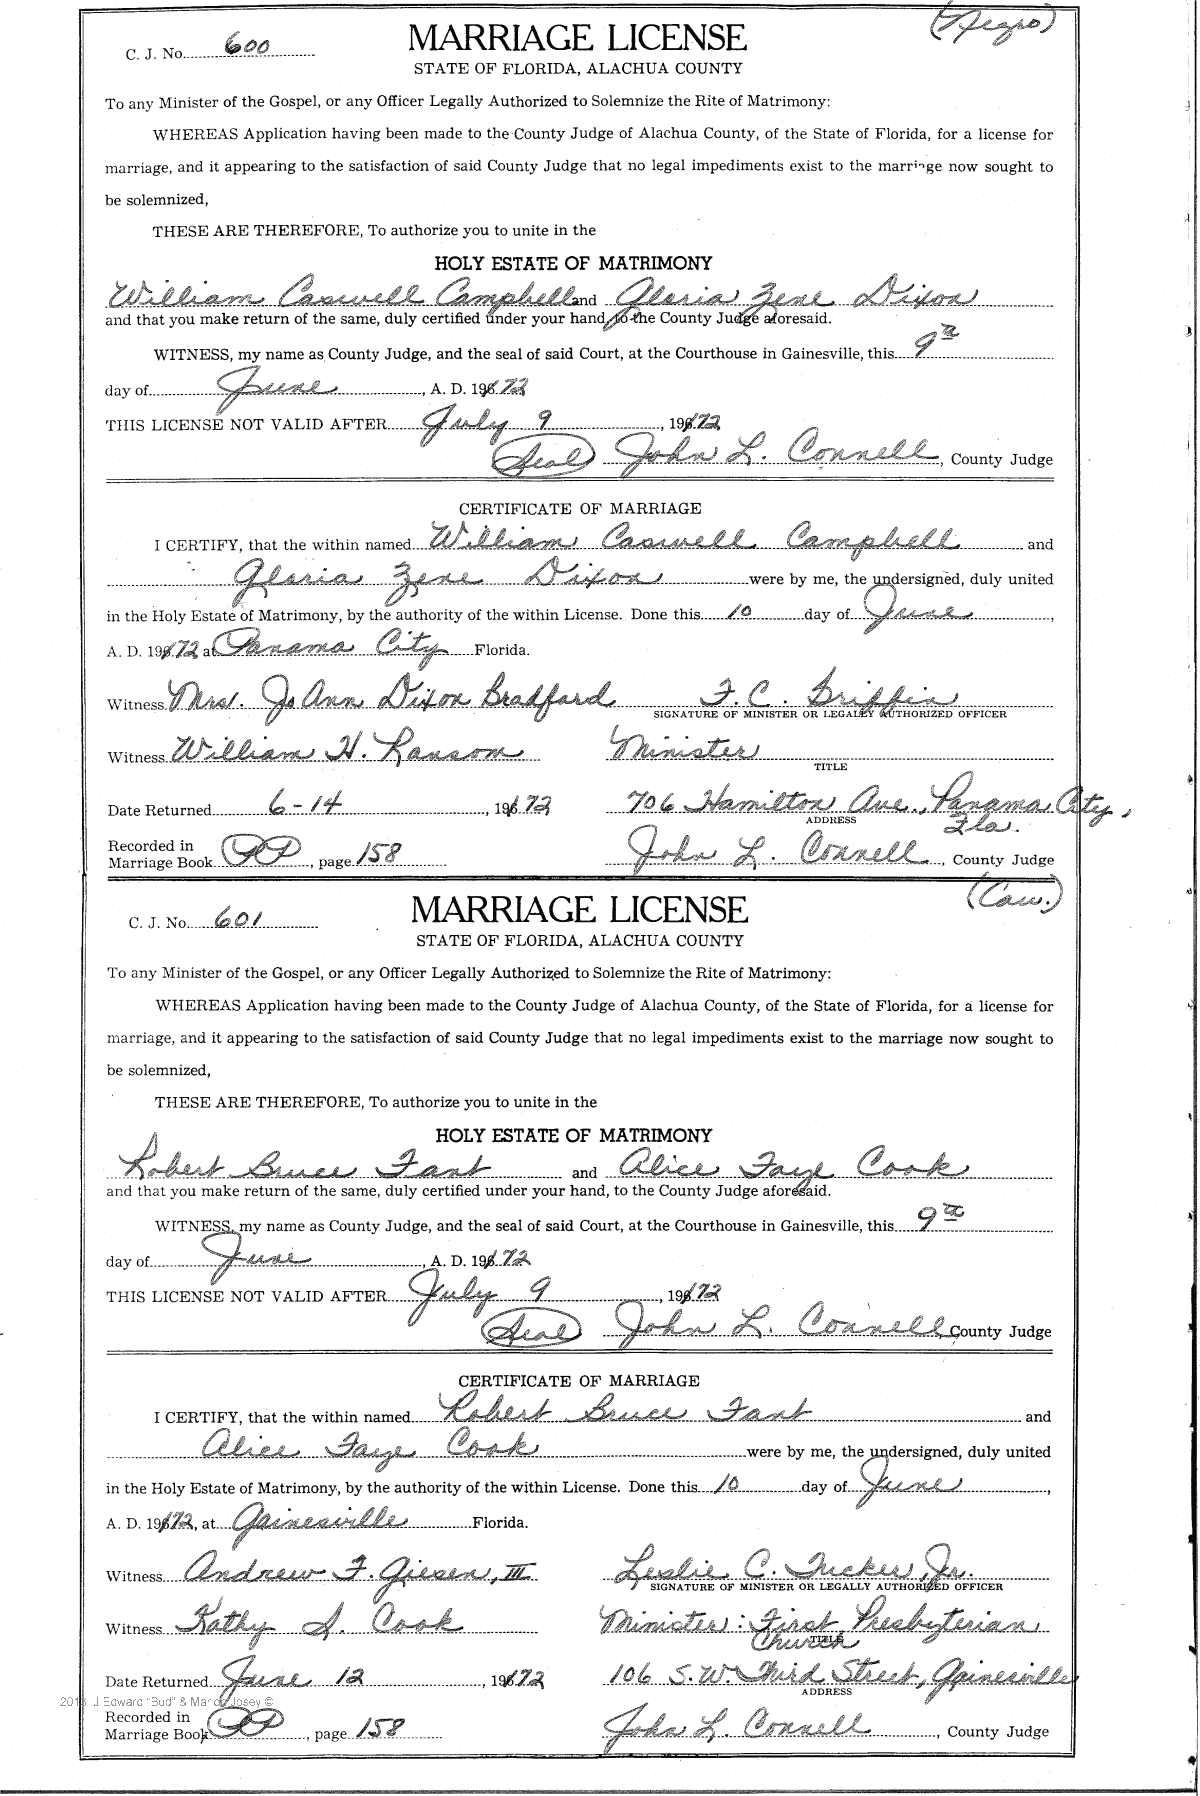 (Negro)
C. J. No. 600 MARRIAGE LICENSE
STATE OF FLORIDA, ALACHUA COUNTY
To any Minister of the Gospel, or any Officer Legally Authorized to Solemnize the Rite of Matrimony:
WHEREAS Application having been made to the County Judge of Alachua County, of the State of Florida, for a license for
marriage, and it appearing to the satisfaction of said County Judge that no legal impediments exist to the marriage now sought to
be solemnized,
THESE ARE THEREFORE, To authorize you to unite in the
HOLY ESTATE OF MATRIMONY
William Caswell Campbell and Gloria Zene Dixon
and that you make return of the same, duly certified under your hand, to the County Judge aforesaid.
WITNESS, my name as County Judge, and the seal of said Court, at the Courthouse in Gainesville, this 9th
day of June, A. D. 1972
THIS LICENSE NOT VALID AFTER July 9, 1972
(Seal) John L. Connell, County Judge
CERTIFICATE OF MARRIAGE
I CERTIFY, that the within named William Caswell Campbell and
Gloria Zene Dixon were by me, the undersigned, duly united
in the Holy Estate of Matrimony, by the authority of the within License. Done this 10 day of June,
A. D. 1972 at Panama City Florida.
Witness Mrs. Jo Ann Dixon Bradford F. C. Griffin
SIGNATURE OF MINISTER OR LEGALLY AUTHORIZED OFFICER
Witness William H. Ransom Minister
TITLE
Date Returned 6-14, 1972 706 Hamilton Ave., Panama City,
ADDRESS Fla.
Recorded in
Marriage Book PP, page 158 John L. Connell, County Judge
(Cau.)
C. J. No. 601 MARRIAGE LICENSE
STATE OF FLORIDA, ALACHUA COUNTY
To any Minister of the Gospel, or any Officer Legally Authorized to Solemnize the Rite of Matrimony:
WHEREAS Application having been made to the County Judge of Alachua County, of the State of Florida, for a license for
marriage, and it appearing to the satisfaction of said County Judge that no legal impediments exist to the marriage now sought to
be solemnized,
THESE ARE THEREFORE, To authorize you to unite in the
HOLY ESTATE OF MATRIMONY
Robert Bruce Fant and Alice Faye Cook
and that you make return of the same, duly certified under your hand, to the County Judge aforesaid.
WITNESS, my name as County Judge, and the seal of said Court, at the Courthouse in Gainesville, this 9th
day of June, A. D. 1972
THIS LICENSE NOT VALID AFTER July 9, 1972
(Seal) John L. Connell, County Judge
CERTIFICATE OF MARRIAGE
I CERTIFY, that the within named Robert Bruce Fant and
Alice Faye Cook were by me, the undersigned, duly united
in the Holy Estate of Matrimony, by the authority of the within License. Done this 10 day of June,
A. D. 1972, at Gainesville Florida.
Witness Andrew F. Giesen, III Leslie C. Tucker, Jr.
SIGNATURE OF MINISTER OR LEGALLY AUTHORIZED OFFICER
Witness Kathy S. Cook Minister: First Presbyterian
Church TITLE
Date Returned June 12 1972 106 S.W. Third Street, Gainesville
ADDRESS
J Edward "Bud" & Josey ©
Recorded in
Marriage Book PP, page 158 John L. Connell, County Judge